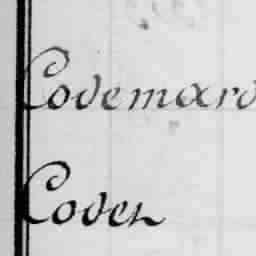 Codemard
Coder